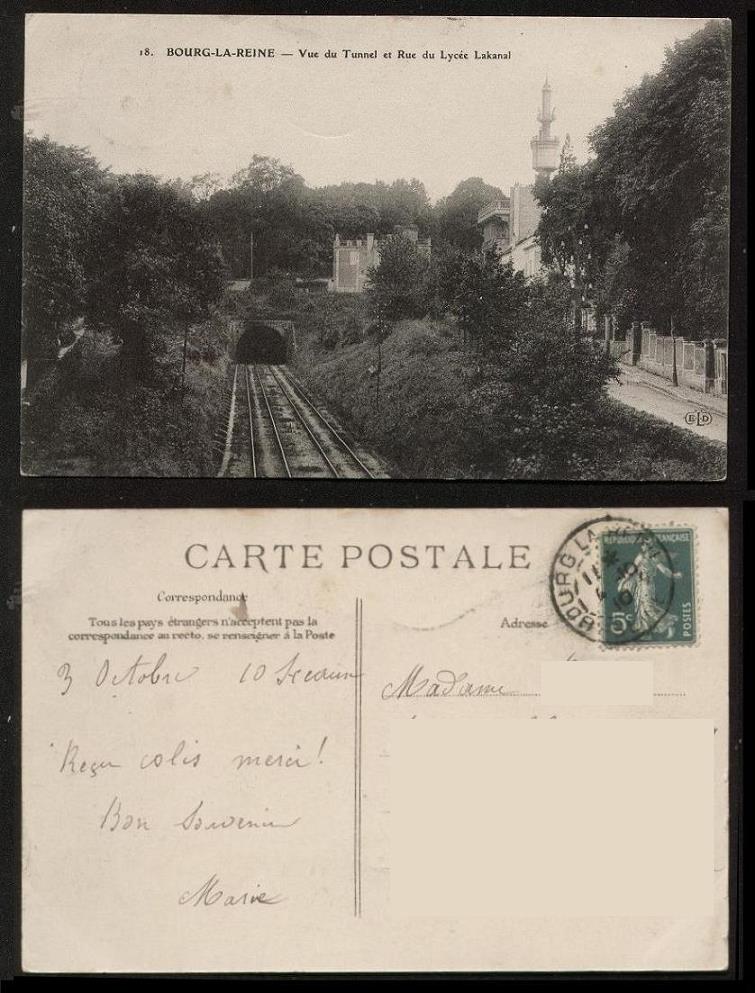 18. BOURG-LA-REINE — Vue du Tunnel et Rue du Lycée Lakanal
ELD
CARTE POSTALE
Correspondance
Tous les pays étrangers n'acceptent pas la
correspondance au recto, se renseigner à la Poste
Adresse
BOURG LA REINE
REPUBLIQUE FRANÇAISE
5c
POSTES
3 Octobre 10 Sceaux
Reçu colis merci!
Bon Souvenir
Marie
Madame